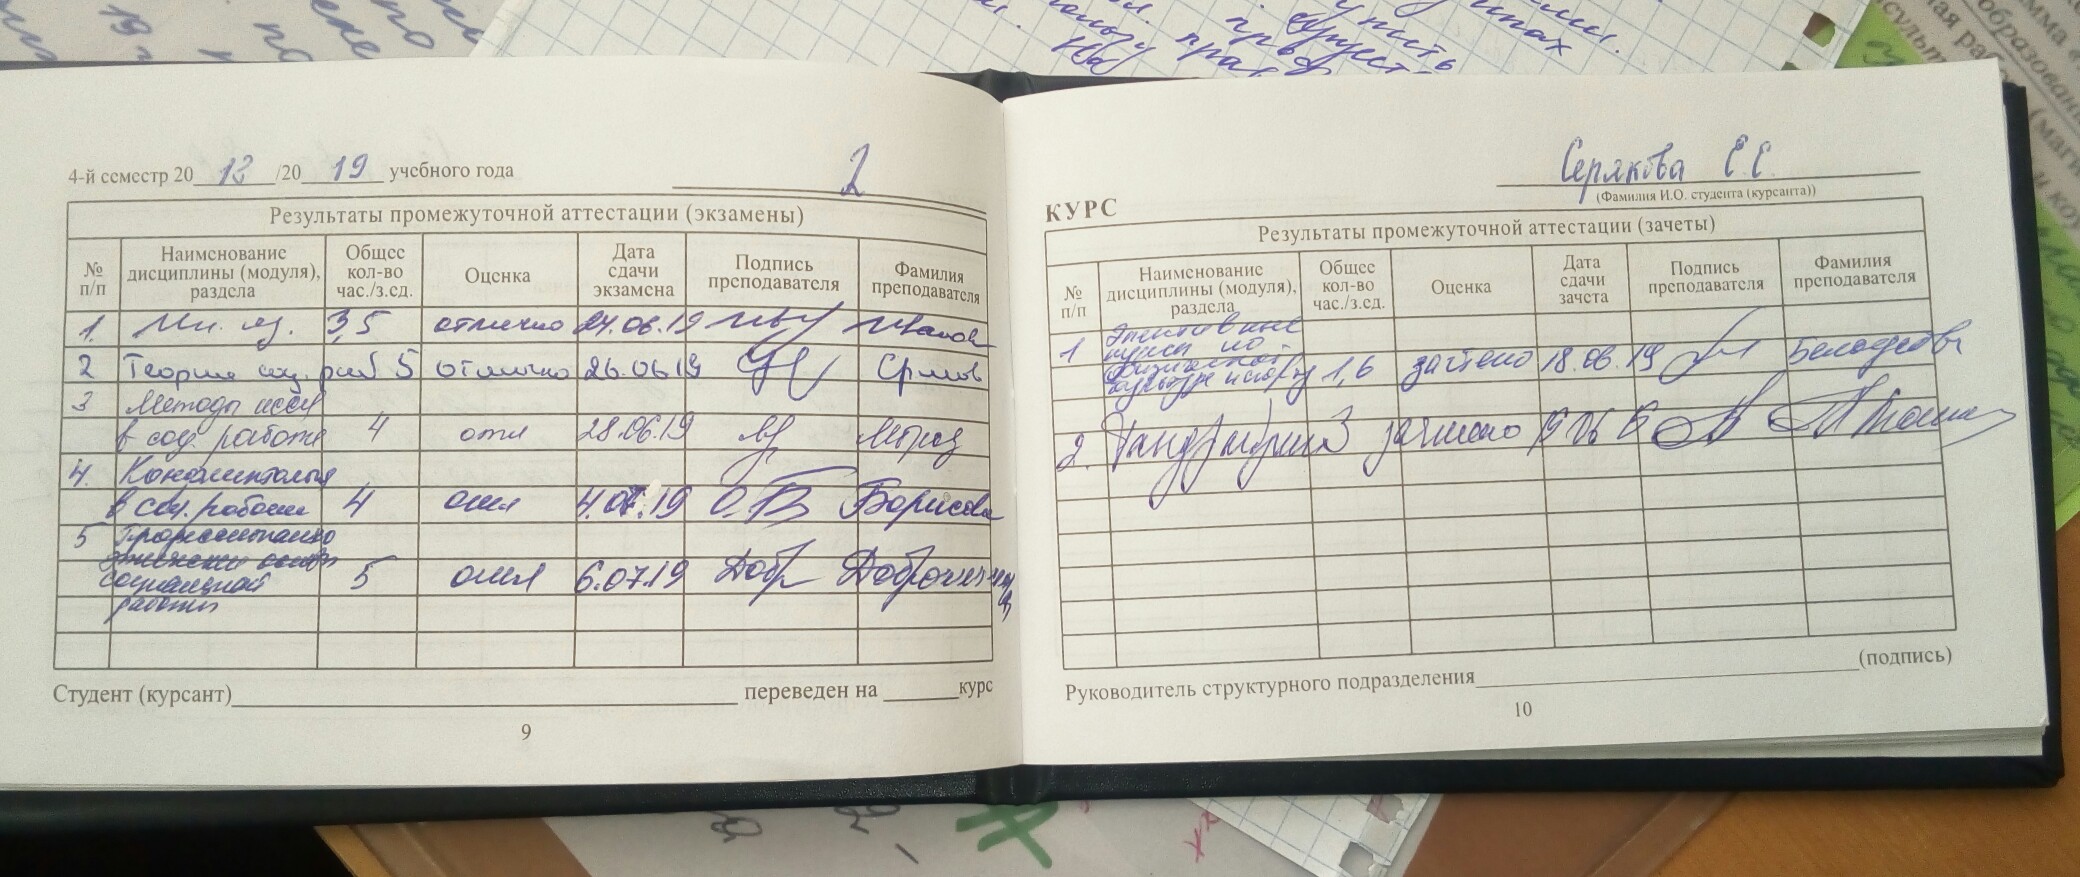 4-й семестр 20 18 /20 19 учебного года
2
Результаты промежуточной аттестации (экзамены)
№ п/п Наименование дисциплины (модуля), раздела Общее кол-во час./з.ед. Оценка Дата сдачи экзамена Подпись преподавателя Фамилия преподавателя
1. Ин. яз. 3,5 отлично 24.06.19 Иванов
2 Теория соц. раб. 5 отлично 26.06.19
3 Методы иссл
в соц. работе 4 отл 28.06.19 Мороз
4. Конфликтология
в соц. работе 4 отл 4.07.19 Борисова
5 Профессионально
этические основы
социальной 5 отл 6.07.19 Добр
работы
Студент (курсант) переведен на курс
9
Серякова С.С.
(Фамилия И.О. студента (курсанта))
КУРС
Результаты промежуточной аттестации (зачеты)
№ п/п Наименование дисциплины (модуля), раздела Общее кол-во час./з.ед. Оценка Дата сдачи зачета Подпись преподавателя Фамилия преподавателя
1 Элективные
курсы по
физической
культуре и спорту 1,6 зачтено 18.06.19
2. 3 зачтено
Руководитель структурного подразделения (подпись)
10